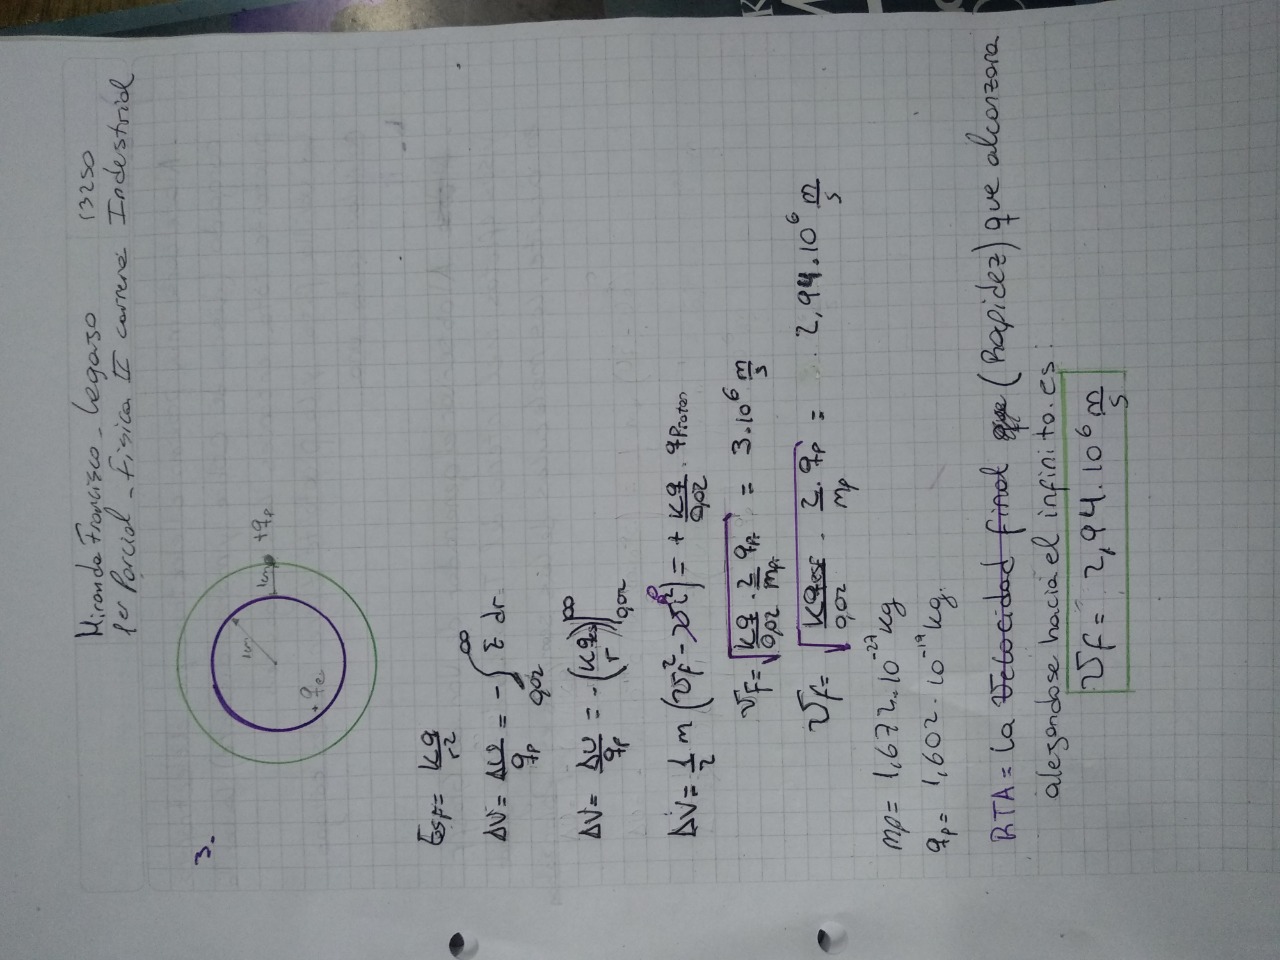 Miranda Francisco - Legajo 13250
1er Parcial - Fisica II carrera Industrial
3.
1cm
1cm
+qp
+qe
Esf = Kq/r²
ΔV = ΔU/qp = -∫_{0,02}^{∞} E dr
ΔV = ΔU/qp = -(Kq/r)|_{0,02}^{∞}
ΔV = 1/2 m (Vf² - Vi²) = + Kq/0,02 . qProton
Vf = √(Kq/0,02 . 2/mp qp) = 3.10⁶ m/s
Vf = √(Kqesf/0,02 . 2.qp/mp) = 2,94.10⁶ m/s
mp = 1,672.10⁻²⁷ kg
qp = 1,602.10⁻¹⁹ kg.
RTA = la Velocidad final que (Rapidez) que alcanzara
alejandose hacia el infinito es:
Vf = 2,94.10⁶ m/s